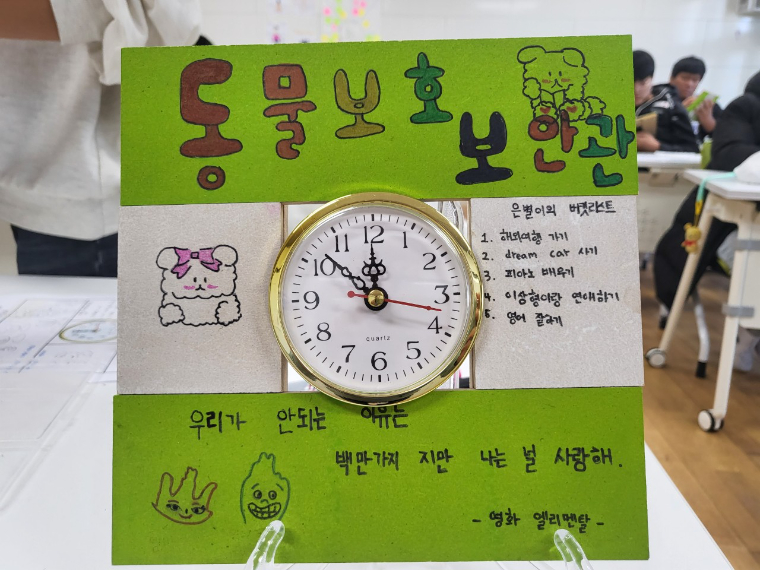 동물보호
보안관
은별이의 버킷리스트
1. 해외여행 가기
2. dream car 사기
3. 피아노 배우기
4. 이상형이랑 연애하기
5. 영어 잘하기
12
2
3
4
6
7
8
9
10
quartz
우리가 안되는 이유는
백만가지 지만 나는 널 사랑해.
- 영화 엘리멘탈 -